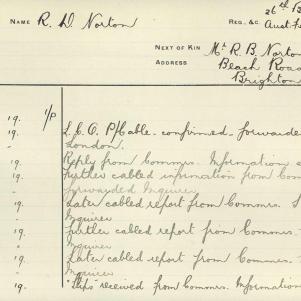 26th B
NAME R. D Norton REG. &C. Aust. F
NEXT OF KIN Mr R. B Norton
ADDRESS Beach Road
Brighton
1/P
19. L.C.O. Cable. confirmed. forwarde
" London.
19. Reply from Commrs. Information
19. Further cabled information from Com
" forwarded Inquirer
19. Later cabled report from Commrs.
" Inquirer
19. Further cabled report from Commrs.
" Inquirer
19. Later cabled report from Commrs.
" Inquirer
19. Slips received from Commrs. Information